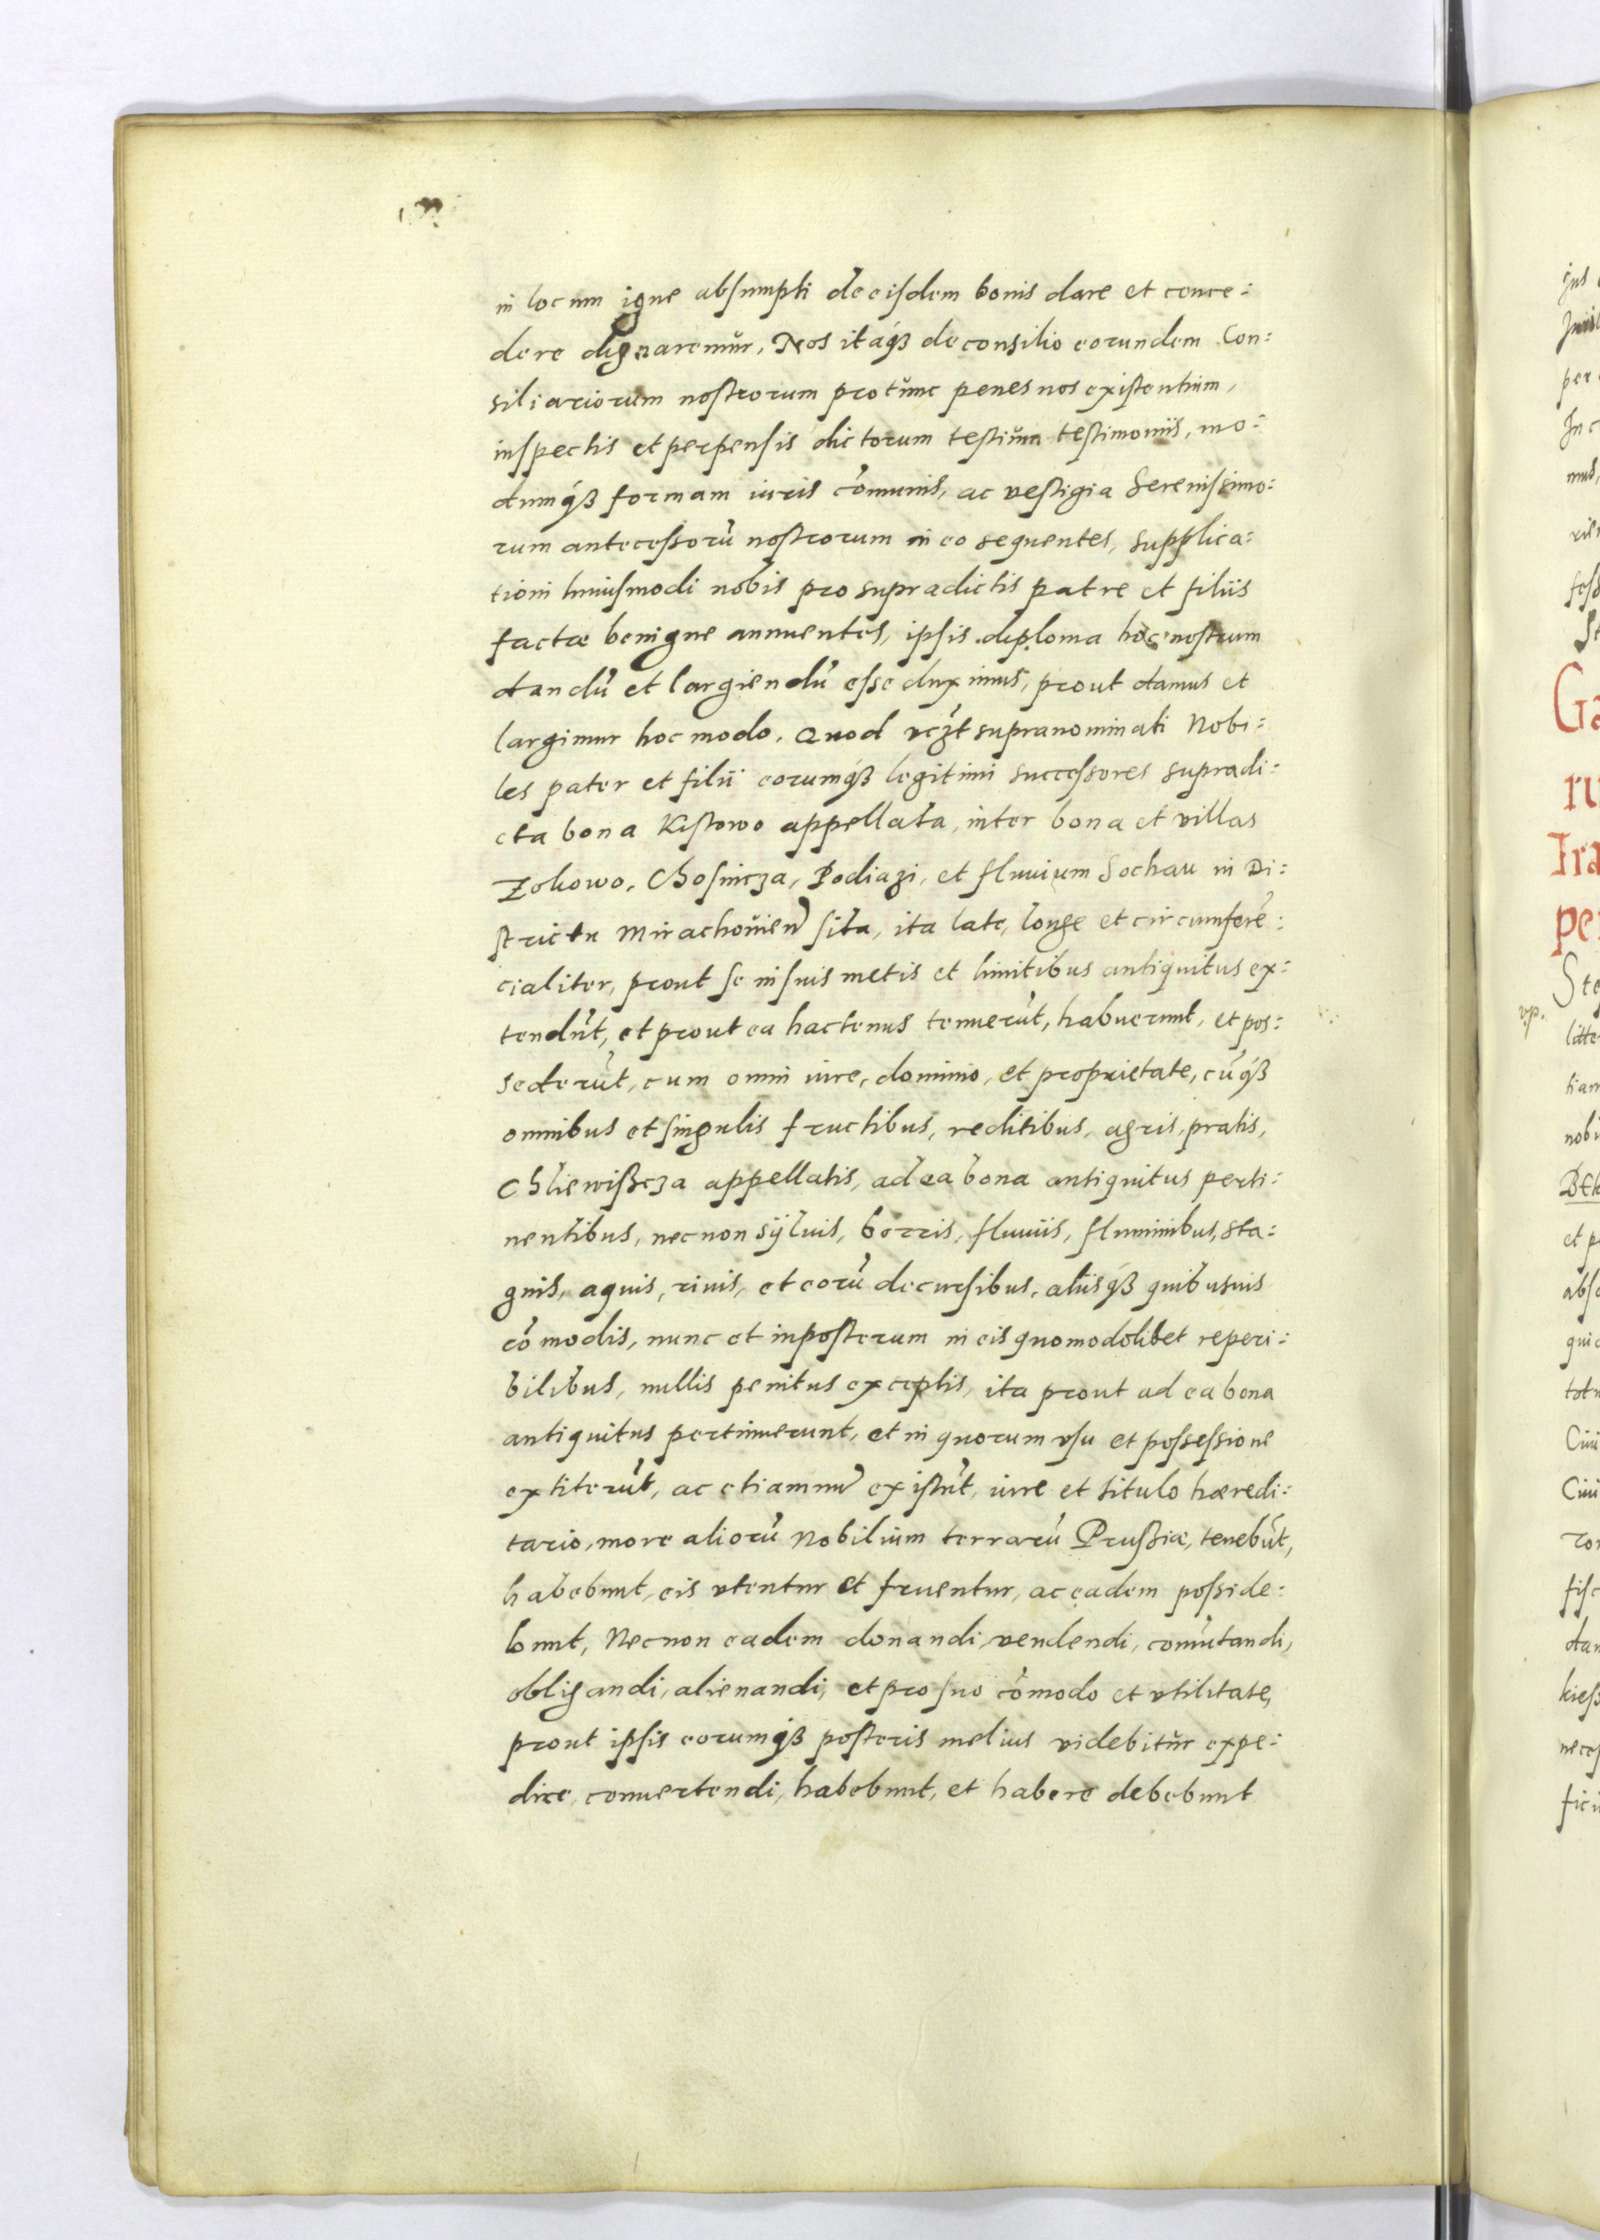 in locum igne absumpti de eisdem bonis dare et conce:
dere dignaremur, Nos itaqȝ de consilio eorundem Con:
siliariorum nostrorum protunc penes nos existentium,
inspectis et perpensis dictorum testium testimoniis, mo:
dumqȝ formam iuris cōmunis, ac vestigia Serenissimo:
rum antecessorū nostrorum in eo sequentes, supplica:
tioni huiusmodi nobis pro supradictis patre et filiis
factæ benigne annuentes, ipsis diploma hoc nostrum
dandū et largiendū esse duximus, prout damus et
largimur hoc modo. Quod vczt supranominati Nobi:
les pater et filii eorumqȝ legitimi successores supradi:
cta bona Kistowo appellata, inter bona et villas
Zokowo, Chosnicza, Podiazi, et fluvium Sochau in Di:
strictu Mirachovien sita, ita late, longe et circumferē:
cialiter, prout se in suis metis et limitibus antiquitus ex:
tendūt, et prout ea hactenus tenuerūt, habuerunt, et pos:
sederūt, cum omni iure, dominio, et proprietate, cūqȝ
omnibus et singulis fructibus, reditibus, agris, pratis,
Chliewiszcza appellatis, ad ea bona antiquitus perti:
nentibus, necnon sÿluis, borris, fluuiis, fluminibus, sta:
gnis, aquis, riuis, et eorū decursibus, aliisqȝ quibusuis
cōmodis, nunc et inposterum in eis quomodolibet reperi:
bilibus, nullis penitus exceptis, ita prout ad ea bona
antiquitus pertinuerunt, et in quorum vsu et possessione
extiterūt, ac etiamnū existūt, iure et titulo hæredi:
tario, more aliorū Nobilium terrarū Prussiæ, tenebūt,
habebunt, eis vtentur et fruentur, ac eadem posside:
bunt, Necnon eadem donandi, vendendi, comūtandi,
obligandi, alienandi, et pro suo cōmodo et vtilitate,
prout ipsis eorumqȝ posteris melius videbitur expe:
dire, conuertendi, habebunt, et habere debebunt